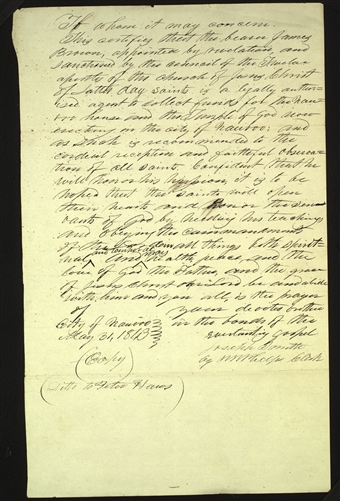 To whom it may concern.
This certifies that the bearer James
Brown, appointed by revelation, and
sanctioned by the council of the Twelve
apostles of the church of Jesus Christ
of Latter day saints is a legally author-
ised agent to collect funds for the Nau-
voo house and the Temple of God now
erecting in the city of Nauvoo; and
as such is recommended to the
cordial reception and faithful observa-
tion of all saints. Confident that he
will honor his mission it is to be
hoped that the saints will open
their hearts and honor the ser-
vants of God by heeding his teachings
and obeying the commandments
of the all things both spirit-
ual and temporal and health, peace, and the
love of God the Father, and the grace
of Jesus Christ our Lord be and abide
with, him and you all, is the prayer
of your devoted brother
City of Nauvoo in the bonds of the
May 31, 1843 everlasting gospel
Joseph Smith
(Copy) by W W Phelps Clerk
(Ditto to Peter Haws)